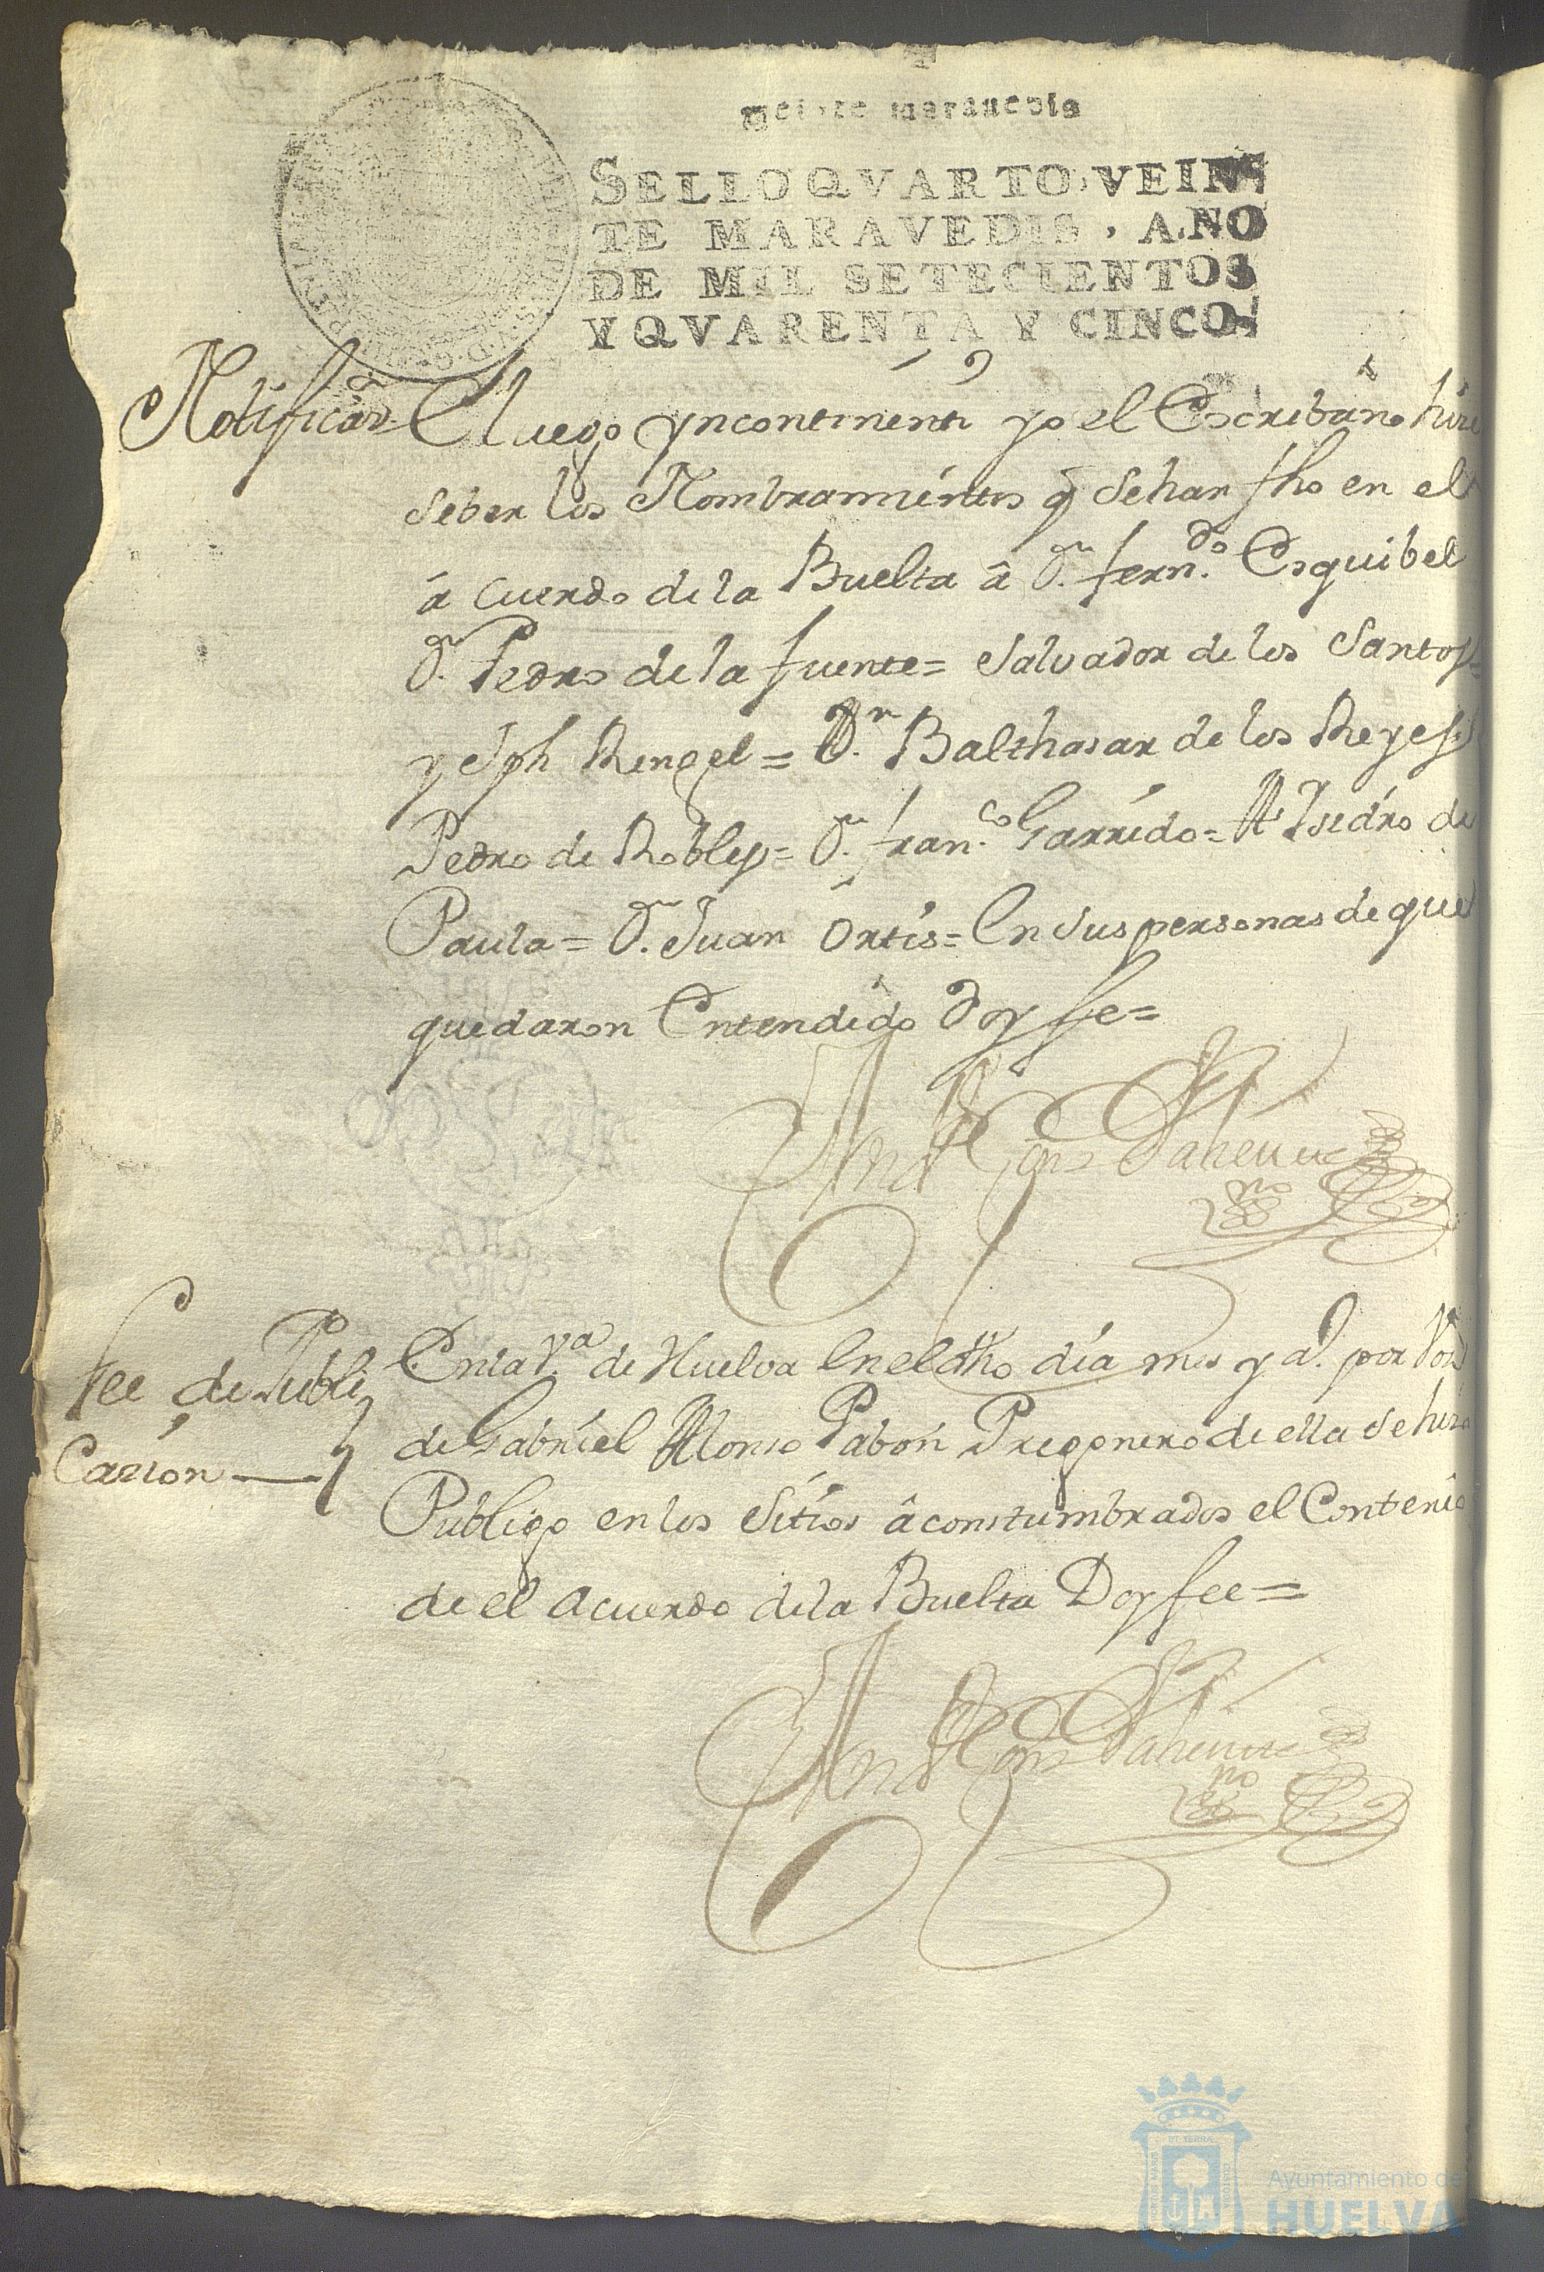 Veinte maravedis
SELLO QVARTO, VEIN-
TE MARAVEDIS, AÑO
DE MIL SETECIENTOS
Y QVARENTA Y CINCO.
Notificaon= E luego yncontinenti yo el Escribano hize
seber los Nombramientos q se han fho en el
á cuerdo de la Buelta â Dn. ferndo. Esquibel
Dn. Pedro de la fuente= Salvador de los Santos=
y Jph Rengel= Dn. Balthasar de los Reyes=
Pedro de Robles= Dn. franco. Garrido= Isidro de
Paula= Dn. Juan Ortis= En sus personas de que
quedaron Entendido Doy fe=
Fee de Publi
Cazion
En la Va. de Huelva En el dho dia mes y a. por Vos
de Gabriel Alonso Pabón Pregonero de ella se hizo
Publigo en los Sitios âconstumbrados el Contenido
de el Acuerdo de la Buelta Doy fee=
Ayuntamiento de
HUELVA